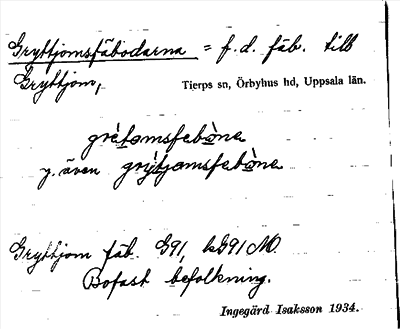 Gryttjomsfäbodarna = f.d. fäb. till
Gryttjom, Tierps sn, Örbyhus hd, Uppsala län.
grètamsfebòna
y. även grỳtjamsfebòna
Gryttjom fäb. G91, kG91 NO.
Bofast befolkning.
Ingegärd Isaksson 1934.